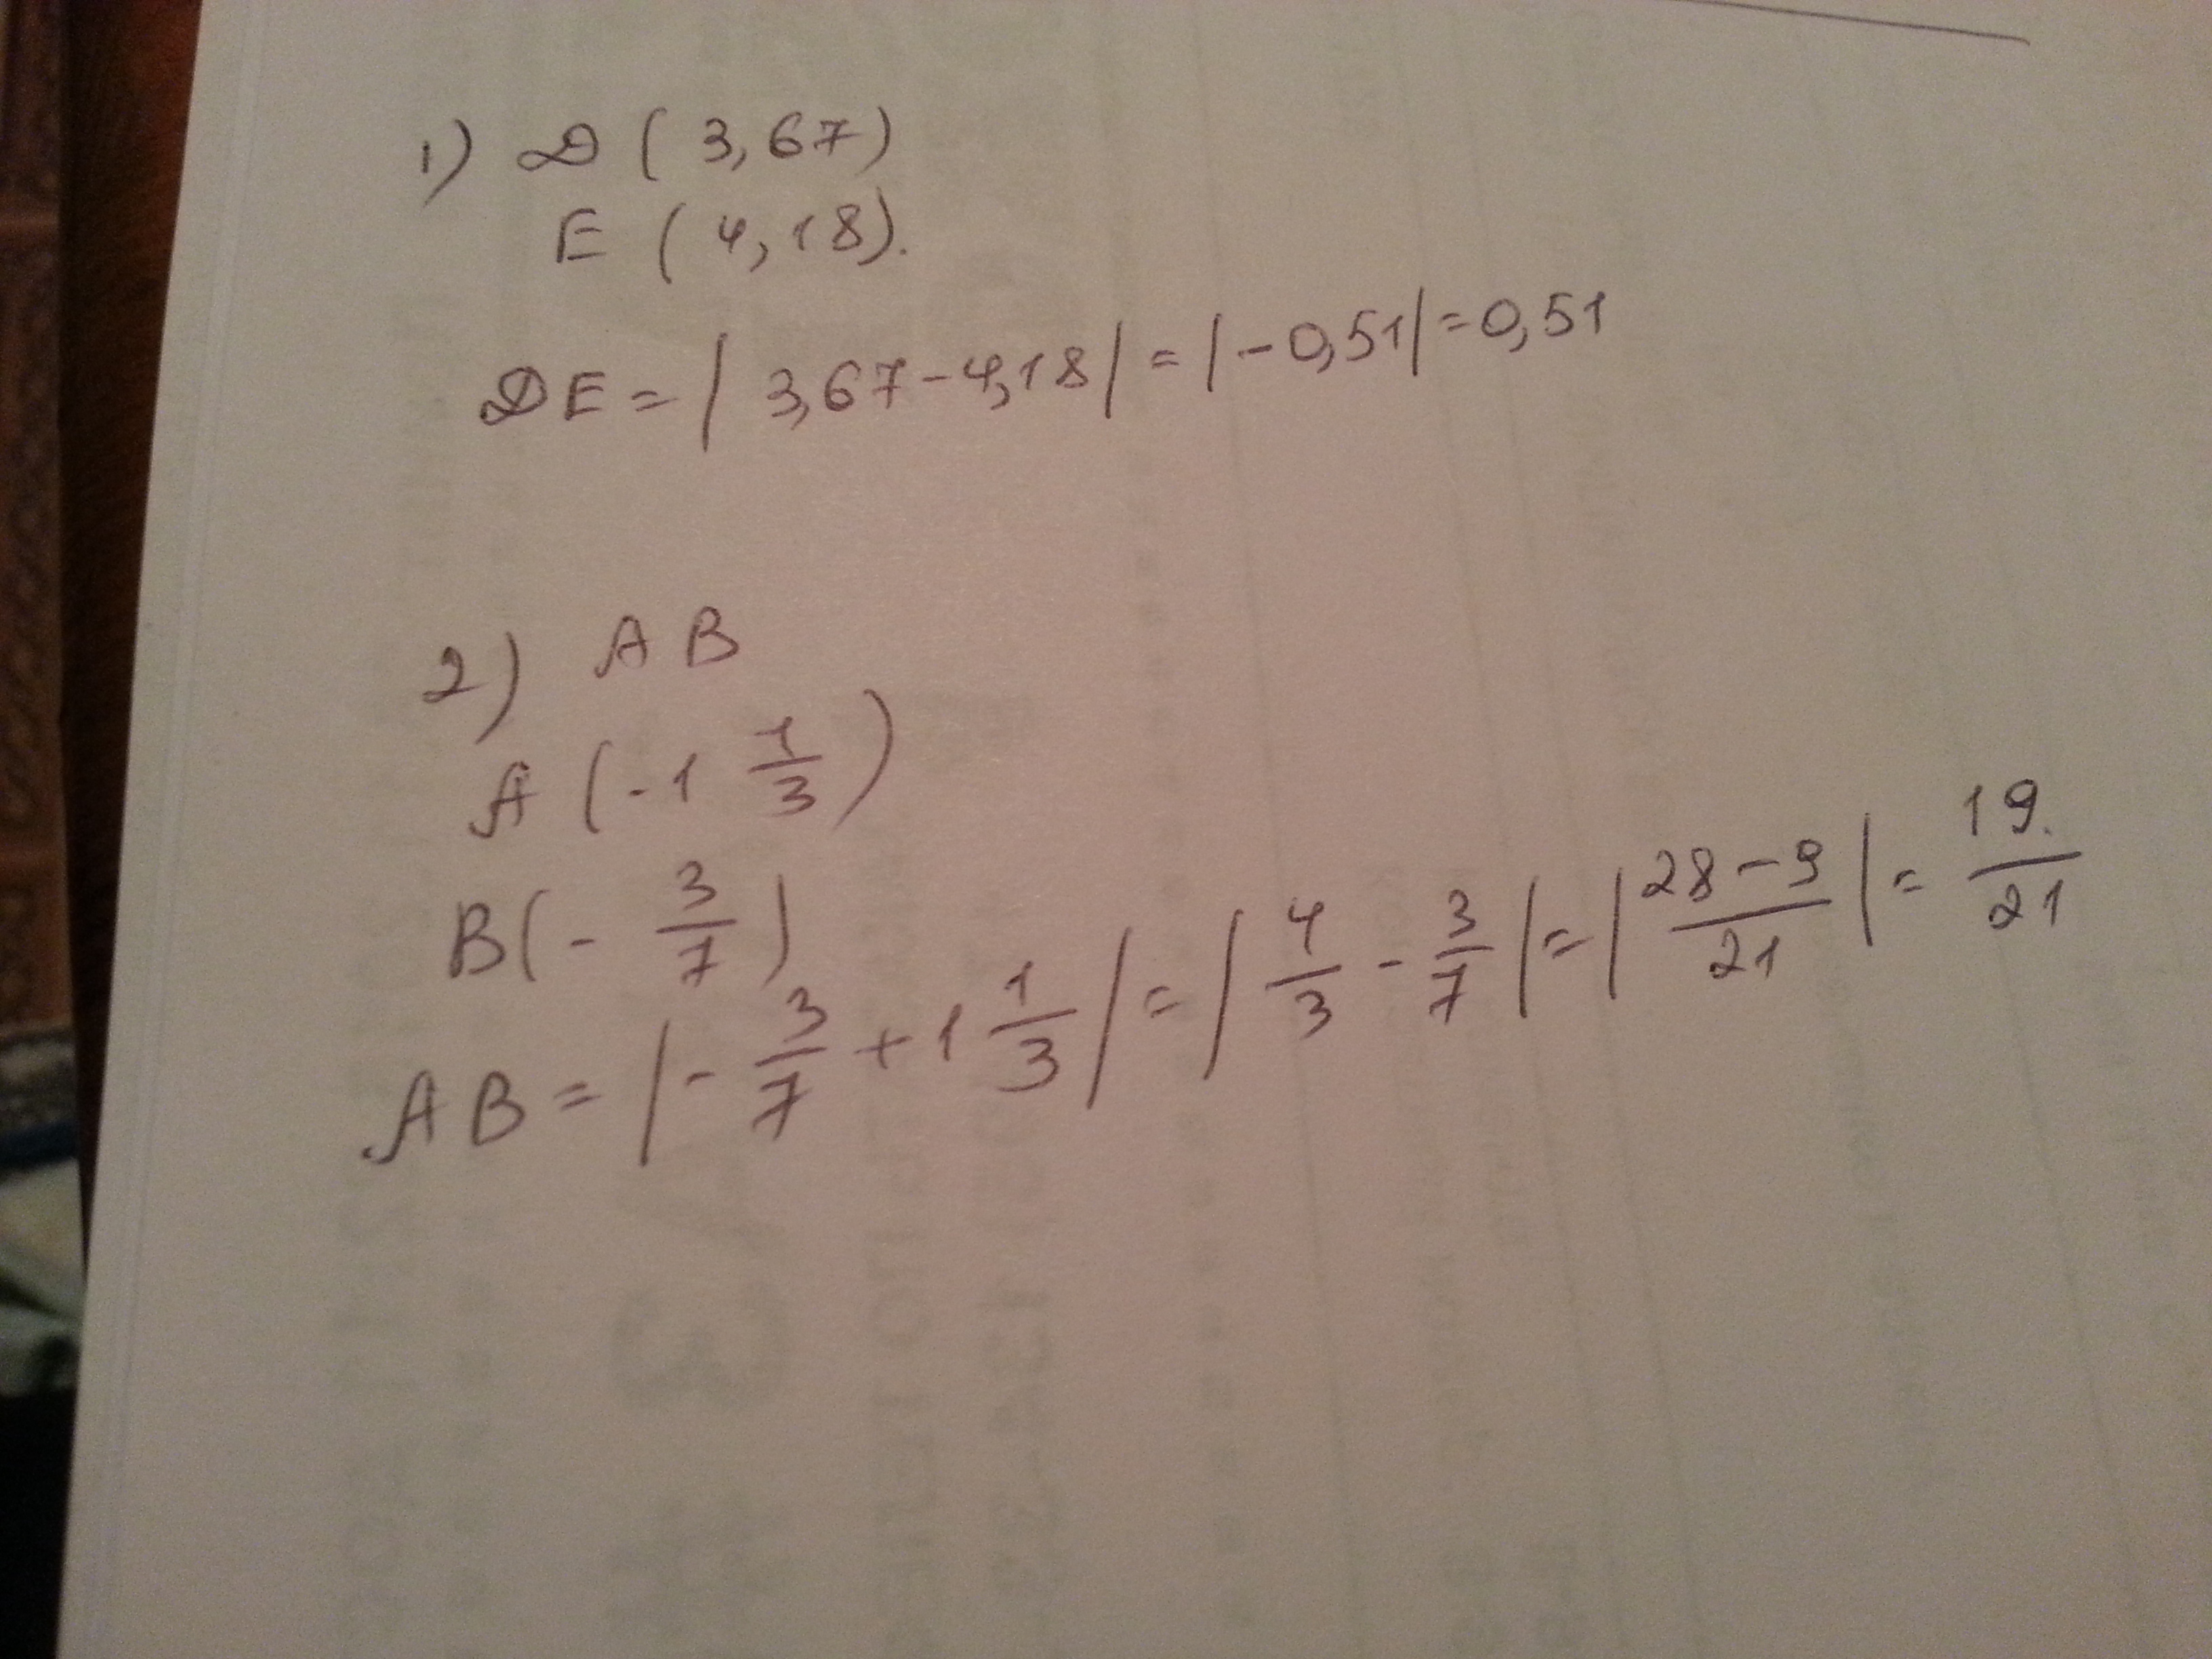 1) D ( 3,67)
E ( 4,18).
DE = | 3,67-4,18| = |-0,51| = 0,51
2) AB
A (-1 1/3)
B(- 3/7)
AB = |- 3/7 + 1 1/3| = | 4/3 - 3/7 | = | 28-9/21 | = 19./21